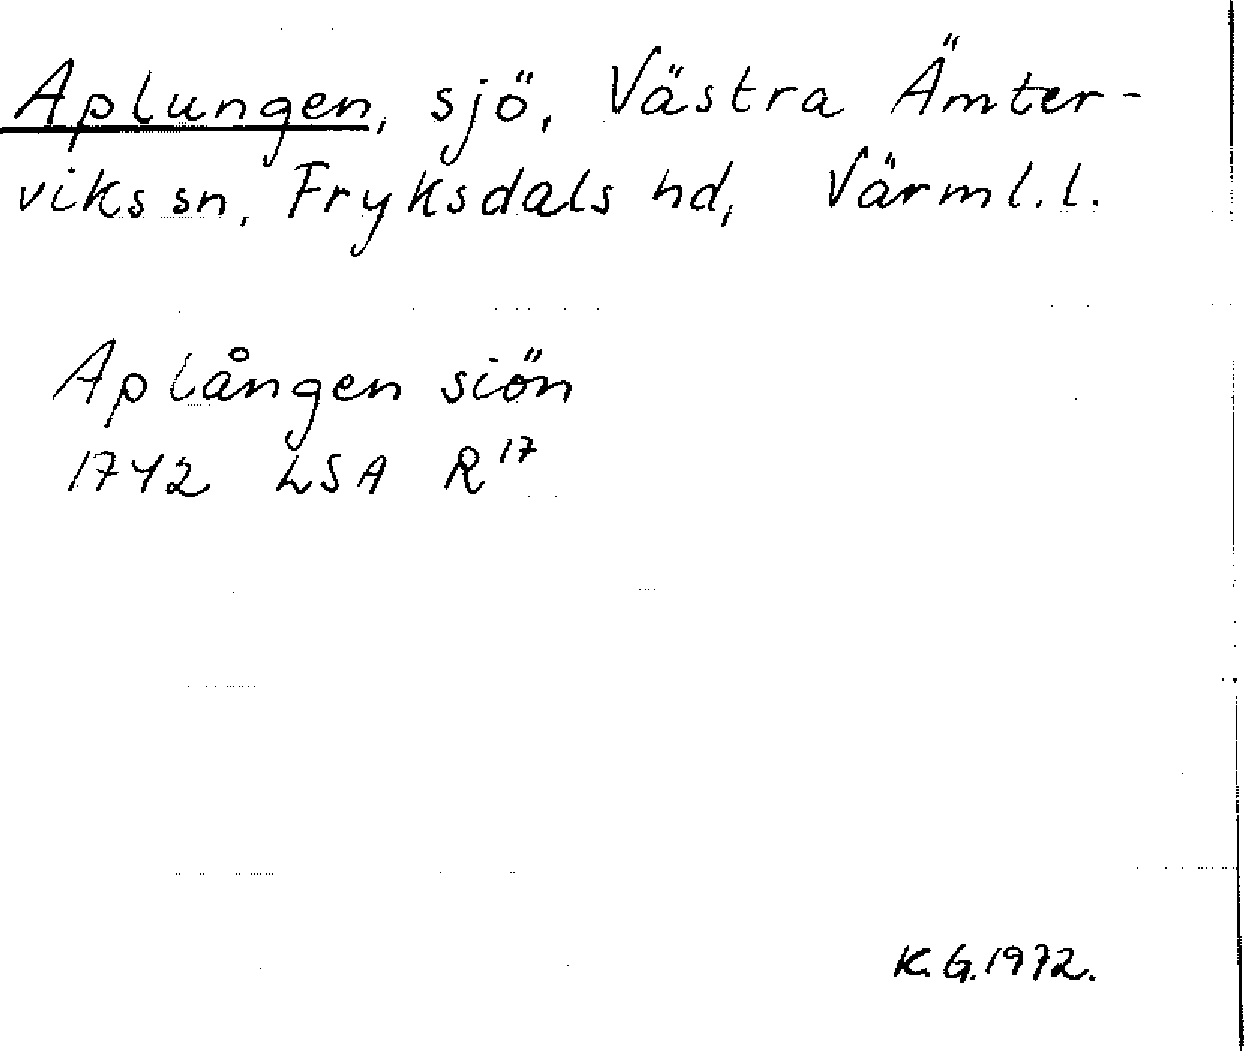 Aplungen, sjö, Västra Ämter-
viks sn, Fryksdals hd, Värml. l.
Aplången siön
1742 LSA R 17
K.G. 1972.